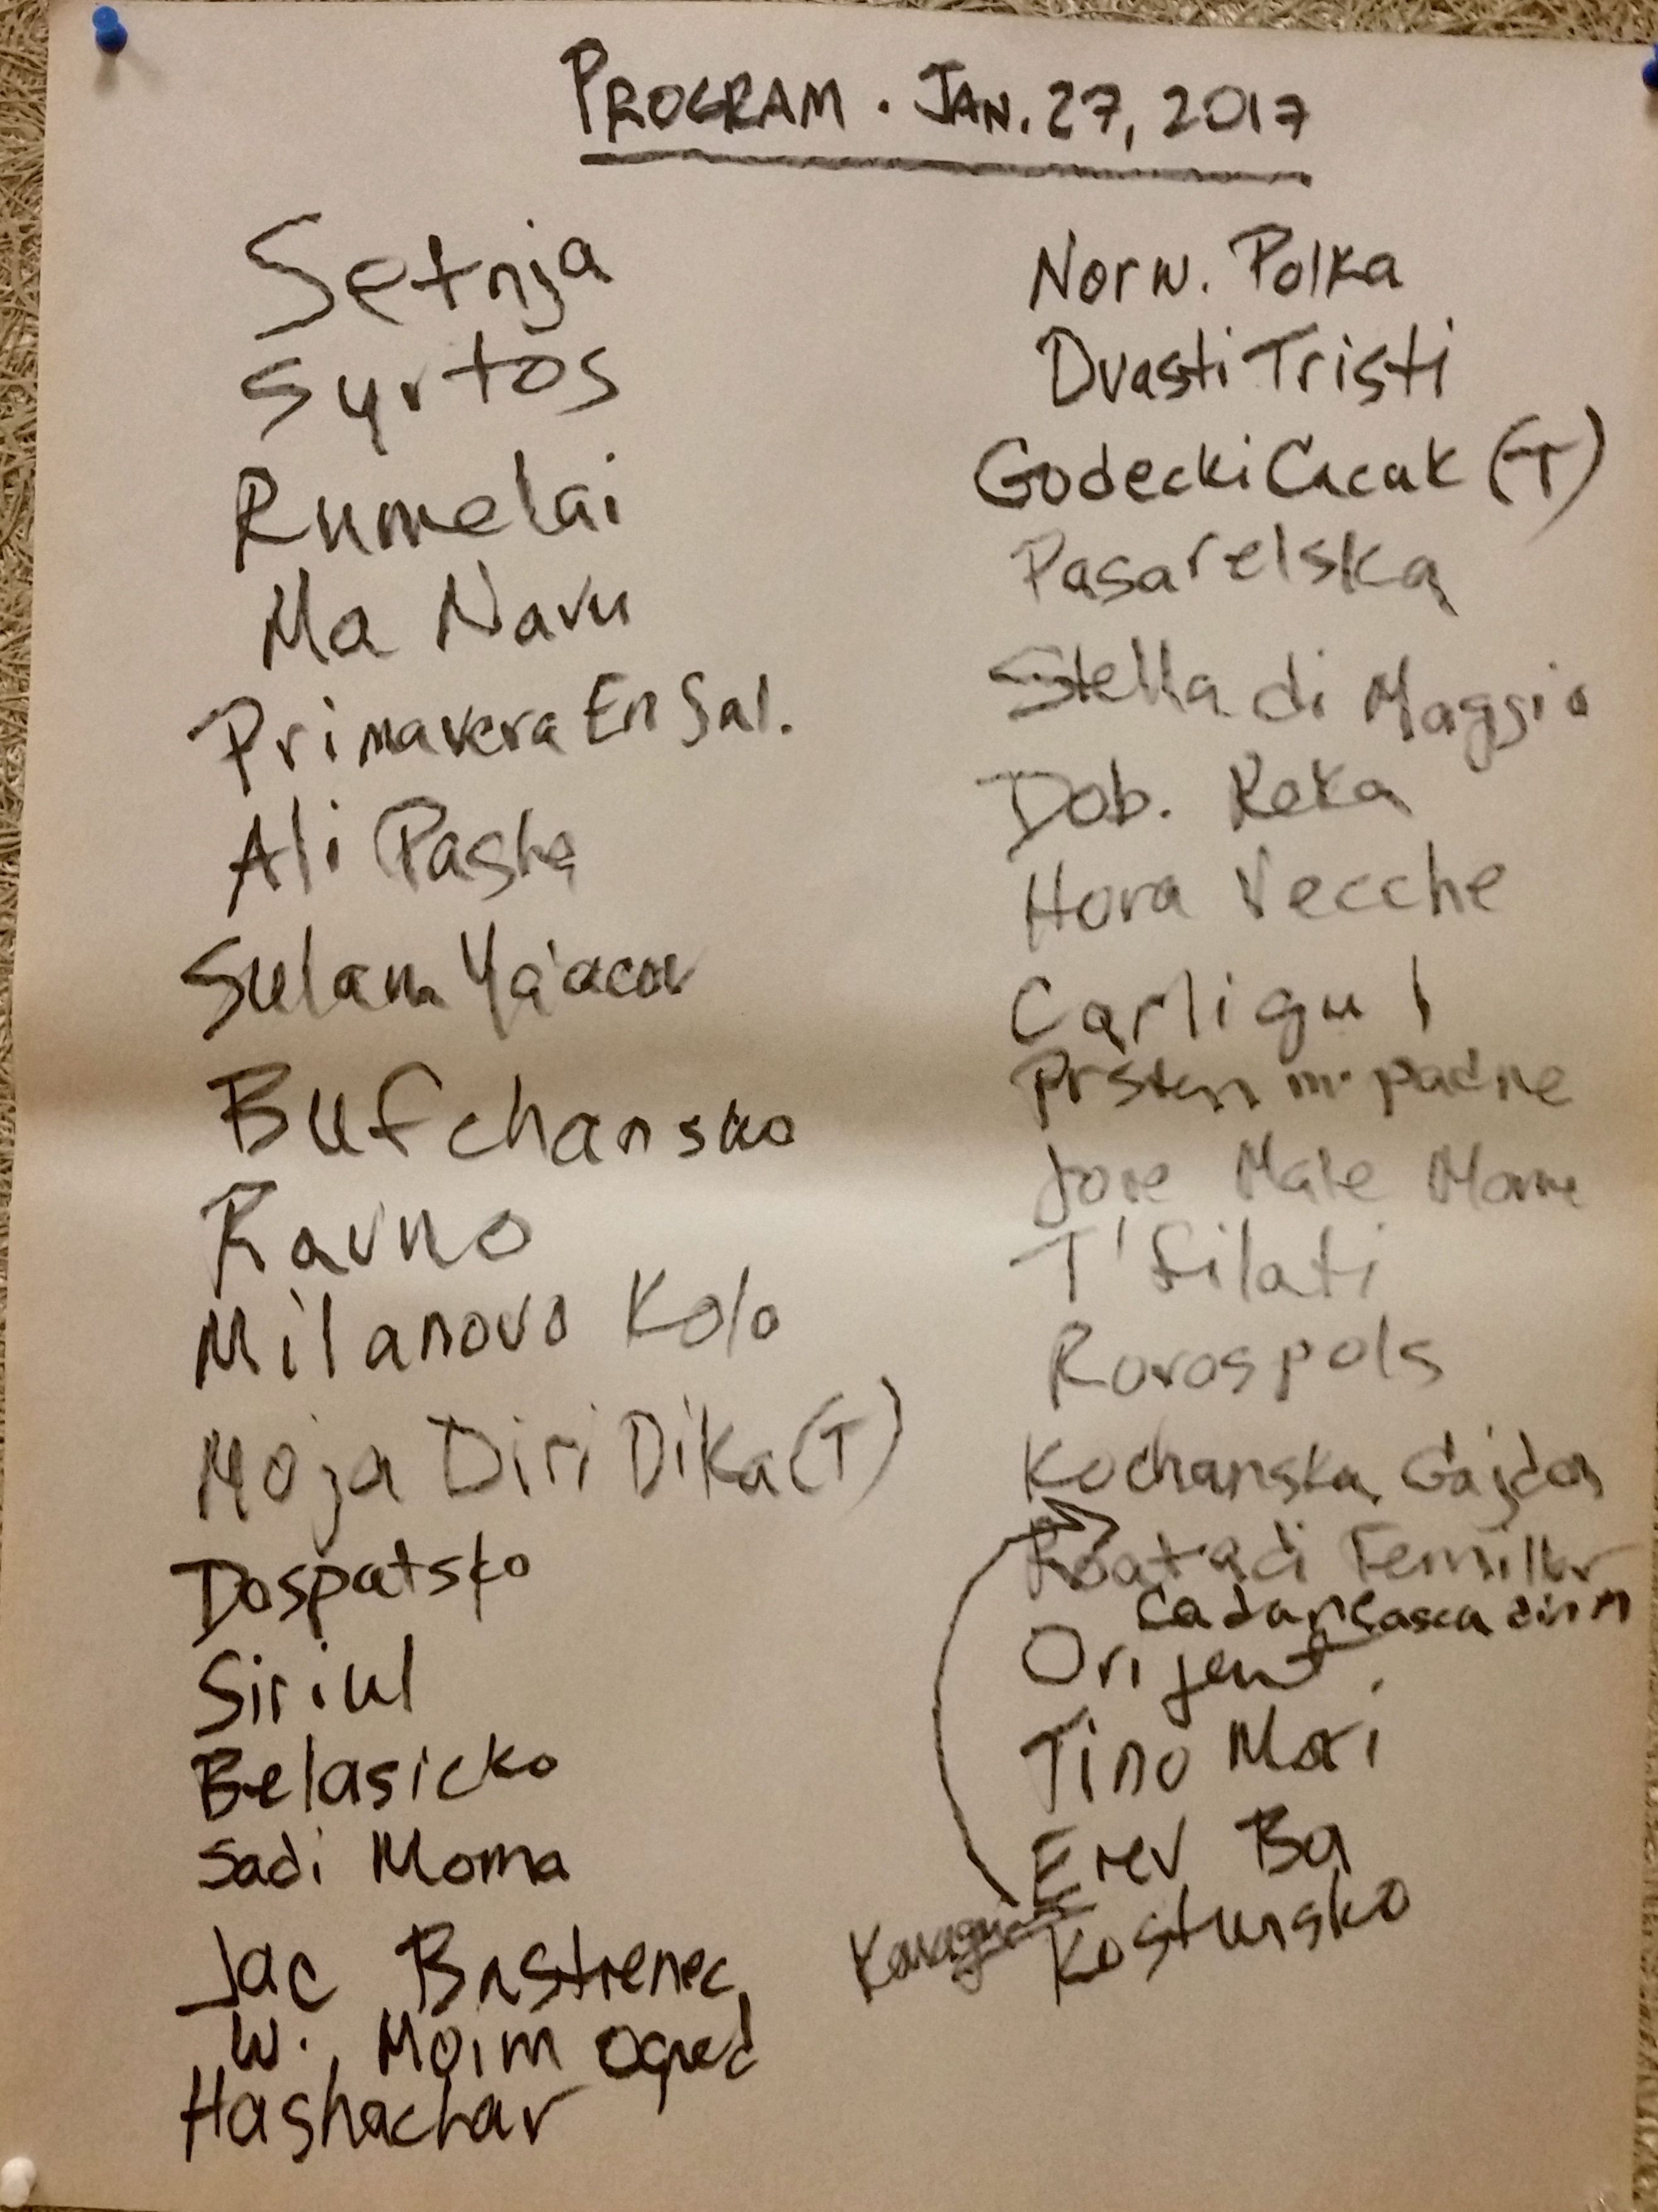 PROGRAM . JAN. 27, 2017
Setnja
Syrtos
Rumelai
Ma Navu
Primavera En Sal.
Ali Pasha
Sulam Ya'acov
Bufchansko
Ravno
Milanovo Kolo
Moja Diri Dika (T)
Dospatsko
Siriul
Belasicko
Sadi Moma
Jac Bistrenec
W. Moim Ogred
Hashachar
Norw. Polka
Dvasti Tristi
Godecki Cacak (T)
Pasarelska
Stella di Maggio
Dob. Reka
Hora Vecche
Carligul
Prsten m. padne
Jove Male Mome
T'filati
Rorospols
Kochanska Gajda
Roata di
Cadaneasca din M
Orijent
Tino Mori
Erev Ba
Kostursko